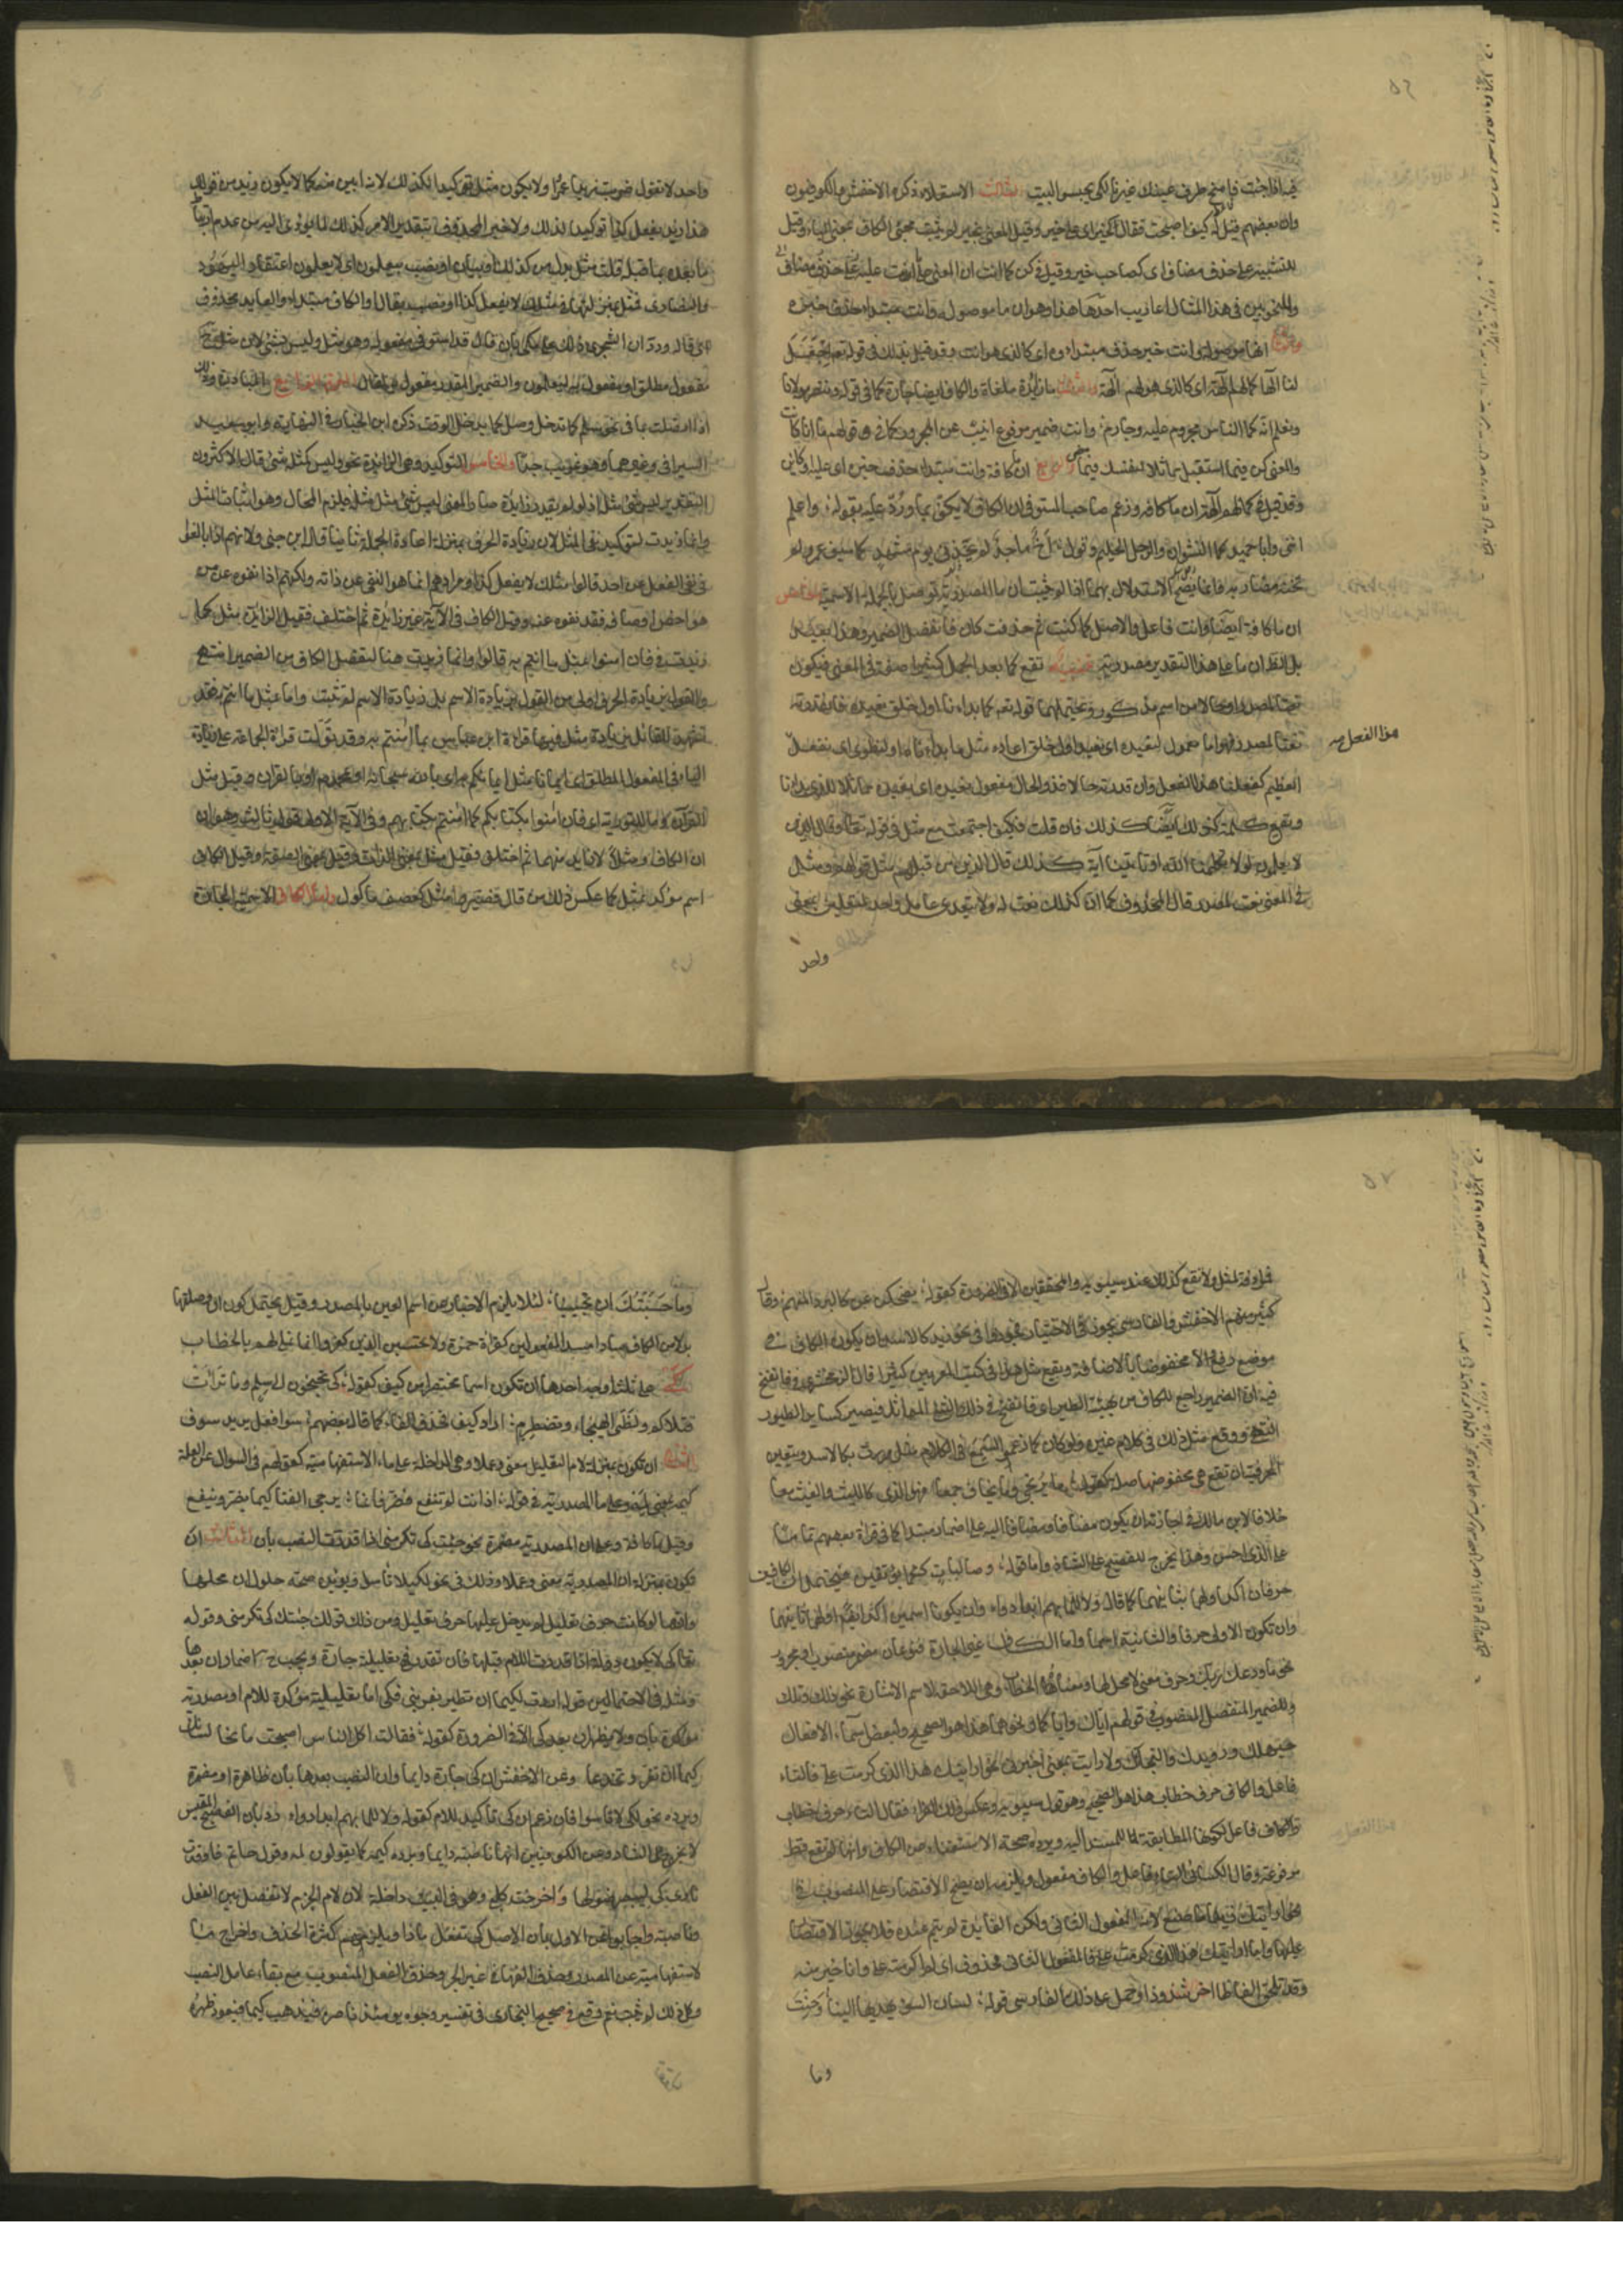 ٥٦
اذا جئت فامنح طرف عينك غيرنا لكي يحسبوا البيت الثالث الاستعلاء ذكره الاخفش والكوفيون
وان بعضهم قيل له كيف اصبحت فقال كخير اي على خير وقيل المعنى بخير ولم يثبت مجئ الكاف بمعنى الباء وقيل
للتشبيه على حذف مضاف اي كصاحب خير وقيل في كن كما انت ان المعنى على ما انت عليه
وللنحويين في هذا المثال اعاريب احدها هذا وهو ان ما موصولة وانت مبتداء حذف خبره
انها موصولة وانت خبر حذف مبتداؤه اي كالذي هو انت وقد قيل بذلك في قوله تعالى اجعل
لنا الها كما لهم آلهة اي كالذي هو لهم آلهة والثالث ما زائدة ملغاة والكاف ايضا جارة كما في قوله وننصر مولانا
ونعلم انه كما الناس مجروم عليه وجارم وانت ضمير مرفوع انيب عن المجرور كما في قولهم ما انا كانت
والمعنى كن فيما استقبل مماثلا لنفسك فيما مضى والرابع ان ما كافة وانت مبتداء حذف خبره اي عليه او كائن
وقد قيل في كما لهم آلهة ان ما كافة وزعم صاحب المستوفى ان الكاف لا تكف بما ورد عليه بقوله واعلم
انني وابا حميد كما النشوان والرجل الحليم وقوله اخ ماجد لم يخزني يوم مشهد كما سيف عمرو لم
تخنه مضاربه وانما يصح الاستدلال بهما اذا لم يثبت ان ما المصدرية توصل بالجملة الاسمية الخامس
ان ما كافة ايضا وانت فاعل والاصل كما كنت ثم حذفت كان فانفصل الضمير وهذا بعيد
بل الظاهر ان ما على هذا التقدير مصدرية تنبيه تقع كما بعد الجمل كثيرا صفة في المعنى فتكون
نعتا لمصدر او حالا من اسم مذكور ويحتملهما قوله تعالى كما بدانا اول خلق نعيده فان قدرته
نعتا لمصدر فهو اما معمول لنعيده اي نعيد اول خلق اعادة مثل ما بداناه او لنطوي اي نفعل
العظيم كفعلنا هذا الفعل وان قدرته حالا فذو الحال مفعول نعيده اي نعيده مماثلا للذي بدانا
وتقع كلمة كذلك ايضا كذلك فان قلت فكيف اجتمعت مع مثل في قوله تعالى وقال الذين
لا يعلمون لولا يكلمنا الله او تاتينا آية كذلك قال الذين من قبلهم مثل قولهم ومثل
في المعنى نعت لمصدر قال المحذوف كما ان كذلك نعت له ولا يتعدى عامل واحد لمتعلقين بمعنى
هذا الفعل صح
واحد
واحد لا تقول ضربت زيدا عمرا ولا يكون مثل توكيدا لكذلك لانه ابين منه كما لا يكون زيد من قولك
هذا زيد يفعل كذا توكيدا لذلك ولا خبرا لمحذوف بتقدير الامر كذلك لما يؤدي اليه من عدم ارتباط
ما بعده بما قبله قلت مثل بدل من كذلك او بيان او نصب بيعلمون اي لا يعلمون اعتقاد اليهود
والنصارى فمثل بمنزلتها في مثلك لا يفعل كذا او نصب بقال او الكاف مبتداء والعايد محذوف
اي قاله ورد ابن الشجري ذلك على مكي بان قال قد استوفى مفعوله وهو مثل وليس بشئ لان مثل ح
مفعول مطلق او مفعول به ليعلمون والضمير المقدر مفعول به لقال الرابع المبادرة وذلك
اذا اتصلت بما في نحو سلم كما تدخل وصل كما يدخل الوقت ذكره ابن الخباز في النهاية وابو سعيد
السيرافي وغيرهما وهو غريب جدا والخامس التوكيد وهي الزايدة نحو وليس كمثله شئ قال الاكثرون
التقدير ليس شئ مثله اذ لو لم يقدر زايدة صار المعنى ليس شئ مثل مثله فيلزم المحال وهو اثبات المثل
وانما زيدت لتوكيد نفي المثل لان زيادة الحرف بمنزلة اعادة الجملة ثانيا قاله ابن جني ولانهم اذا بالغوا
في نفي الفعل عن احد قالوا مثلك لا يفعل كذا ومرادهم انما هو النفي عن ذاته ولكنهم اذا نفوه عن من
هو اخص اوصافه فقد نفوه عنه وقيل الكاف في الآية غير زائدة ثم اختلف فقيل الزائد مثل كما
زيدت في فان امنوا بمثل ما امنتم به قالوا وانما زيدت هنا لتفصل الكاف من الضمير انتهى
والقول بزيادة الحرف اولى من القول بزيادة الاسم بل زيادة الاسم لم تثبت واما بمثل ما امنتم به فقد
تشهد للقائل بزيادة مثل فيها قراءة ابن عباس بما امنتم به وقد تؤولت قراءة الجماعة على زيادة
الباء في المفعول المطلق اي ايمانا مثل ايمانكم به اي بالله سبحانه او بمحمد او بالقران وقيل مثل
القرآن وما للتورية اي فان امنوا بكتابكم كما امنتم بكتابهم وفي الآية الاولى قول ثالث وهو ان
ان الكاف ومثلا لا زايد منهما ثم اختلف فقيل مثل بمعنى الذات وقيل بمعنى الصفة وقيل الكاف
اسم مؤكد بمثل كما عكس ذلك من قال فصيروا مثل كعصف ماكول واما الكاف الاسمية الجارة
٥٧
فمرادفة لمثل ولا تقع كذلك عند سيبويه والمحققين الا في الضرورة كقوله يضحكن عن كالبرد المنهم وقال
كثير منهم الاخفش والفارسي يجوز في الاختيار فجوزوا في نحو زيد كالاسد ان يكون الكاف في
موضع رفع والاسد مخفوضا بالاضافة ويقع مثل هذا في كتب المعربين كثيرا قال الزمخشري في فانفخ
فيه ان الضمير راجع للكاف من كهيئة الطير اي فانفخ في ذلك الشئ المماثل فيصير كساير الطيور
انتهى ووقع مثل ذلك في كلام غيره ولو كان كما زعموا لسمع في الكلام مثل مررت بكالاسد وتتعين
الحرفية ان تقع هي مخفوضها صلة كقوله ما يرتجى وما يخاف جمعا فهو الذي كالليث والغيث معا
خلافا لابن مالك في اجازته ان يكون مضافا ومضافا اليه على اضمار مبتدا كما في قراءة بعضهم تماما
على الذي احسن وهذا تخريج للفصيح على الشاذ واما قوله وصاليات ككما يؤثفين فيحتمل ان الكافين
حرفان اكد اولهما بثانيهما كما قال ولا للما بهم ابدا دواء وان يكونا اسمين اكد ايضا اولهما ثانيهما
وان تكون الاولى حرفا والثانية اسما واما الكاف غير الجارة فنوعان مضمر منصوب او مجرور
نحو ما ودعك ربك وحرف معنى لا محل لها ومعناها الخطاب وهي اللاحقة لاسم الاشارة نحو ذلك وتلك
وللضمير المنفصل المنصوب في قولهم اياك واياكما ونحوهما هذا هو الصحيح ولبعض اسماء الافعال
حيهلك ورويدك والنجاءك ولارايت بمعنى اخبرني نحو ارايتك هذا الذي كرمت علي فالتاء
فاعل والكاف حرف خطاب هذا هو الصحيح وهو قول سيبويه وعكس ذلك الفراء فقال التاء حرف خطاب
والكاف فاعل لكونها المطابقة للمسند اليه ويرده صحة الاستغناء عن الكاف وانها لم تقع قط
مرفوعة وقال الكسائي التاء فاعل والكاف مفعول ويلزمه ان يصح الاقتصار على المنصوب في
نحو ارايتك زيدا ما صنع لانه المفعول الثاني ولكن الفايدة لم تتم عنده فلا يجوز الاقتصار
عليها واما ارايتك هذا الذي كرمت علي فالمفعول الثاني محذوف اي لم كرمته علي وانا خير منه
وقد تلحق الفاظا اخر شذوذا وحمل على ذلك الفارسي قوله لسان السوء تهديها الينا وحنت
وما
وما حسبتك ان تحينا لئلا يلزم الاخبار عن اسم العين بالمصدر وقيل يحتمل كون ان وصلتها
بدلا من الكاف سادا مسد المفعولين كقراءة حمزة ولا تحسبن الذين كفروا انما نملي لهم بالخطاب
كي على ثلثة اوجه احدها ان تكون اسما مختصرا من كيف كقوله كي تجنحون الى سلم وما ثئرت
قتلاكم ولظى الهيجاء تضطرم اراد كيف فحذف الفاء كما قال بعضهم سو افعل يريد سوف
الثاني ان تكون بمنزلة لام التعليل معنى وعملا وهي الداخلة على ما الاستفهامية كقولهم في السؤال عن العلة
كيمه بمعنى لمه وعلى ما المصدرية في قوله اذا انت لم تنفع فضر فانما يرجى الفتى كيما يضر وينفع
وقيل ما كافة وعلى ان المصدرية مضمرة نحو جئتك كي تكرمني اذا قدرت النصب بان الثالث ان
تكون بمنزلة ان المصدرية معنى وعملا وذلك في نحو لكيلا تاسوا ويؤيده صحة حلول ان محلها
وانها لو كانت حرف تعليل لم يدخل عليها حرف تعليل ومن ذلك قولك جئتك كي تكرمني وقوله
تعالى كي لا يكون دولة اذا قدرت اللام قبلها فان لم تقدر فهي تعليلية جارة ويجب ح اضمار ان بعدها
ومثله في الاحتمالين قوله اردت لكيما ان تطير بقربتي فكي اما تعليلية مؤكدة للام او مصدرية
مؤكدة بان ولا تظهر ان بعد كي الا في الضرورة كقوله فقالت اكل الناس اصبحت مانحا لسانك
كيما ان تغر وتخدعا وعن الاخفش ان كي جارة دايما وان النصب بعدها بان ظاهرة او مضمرة
ويرده نحو لكيلا تاسوا فان زعم ان كي تاكيد للام كقوله ولا للما بهم ابدا دواء رد بان الفصيح المقيس
لا يخرج على الشاذ وعن الكوفيين انها ناصبة دايما ويرده كيمه كما يقولون لمه وقول حاتم فاوقدت
ناري كي ليبصر ضوءها واخرجت كلبي وهو في البيت داخله لان لام الجر لا تفصل بين الفعل
وناصبه واجابوا عن الاول بان الاصل كي تفعل ماذا ويلزمهم كثرة الحذف واخراج ما
الاستفهامية عن الصدر وحذف الفها في غير الجر وحذف الفعل المنصوب مع بقاء عامل النصب
وكل ذلك لم يثبت نعم وقع في صحيح البخاري في تفسير وجوه يومئذ ناضرة فيذهب كيما فيعود ظهره